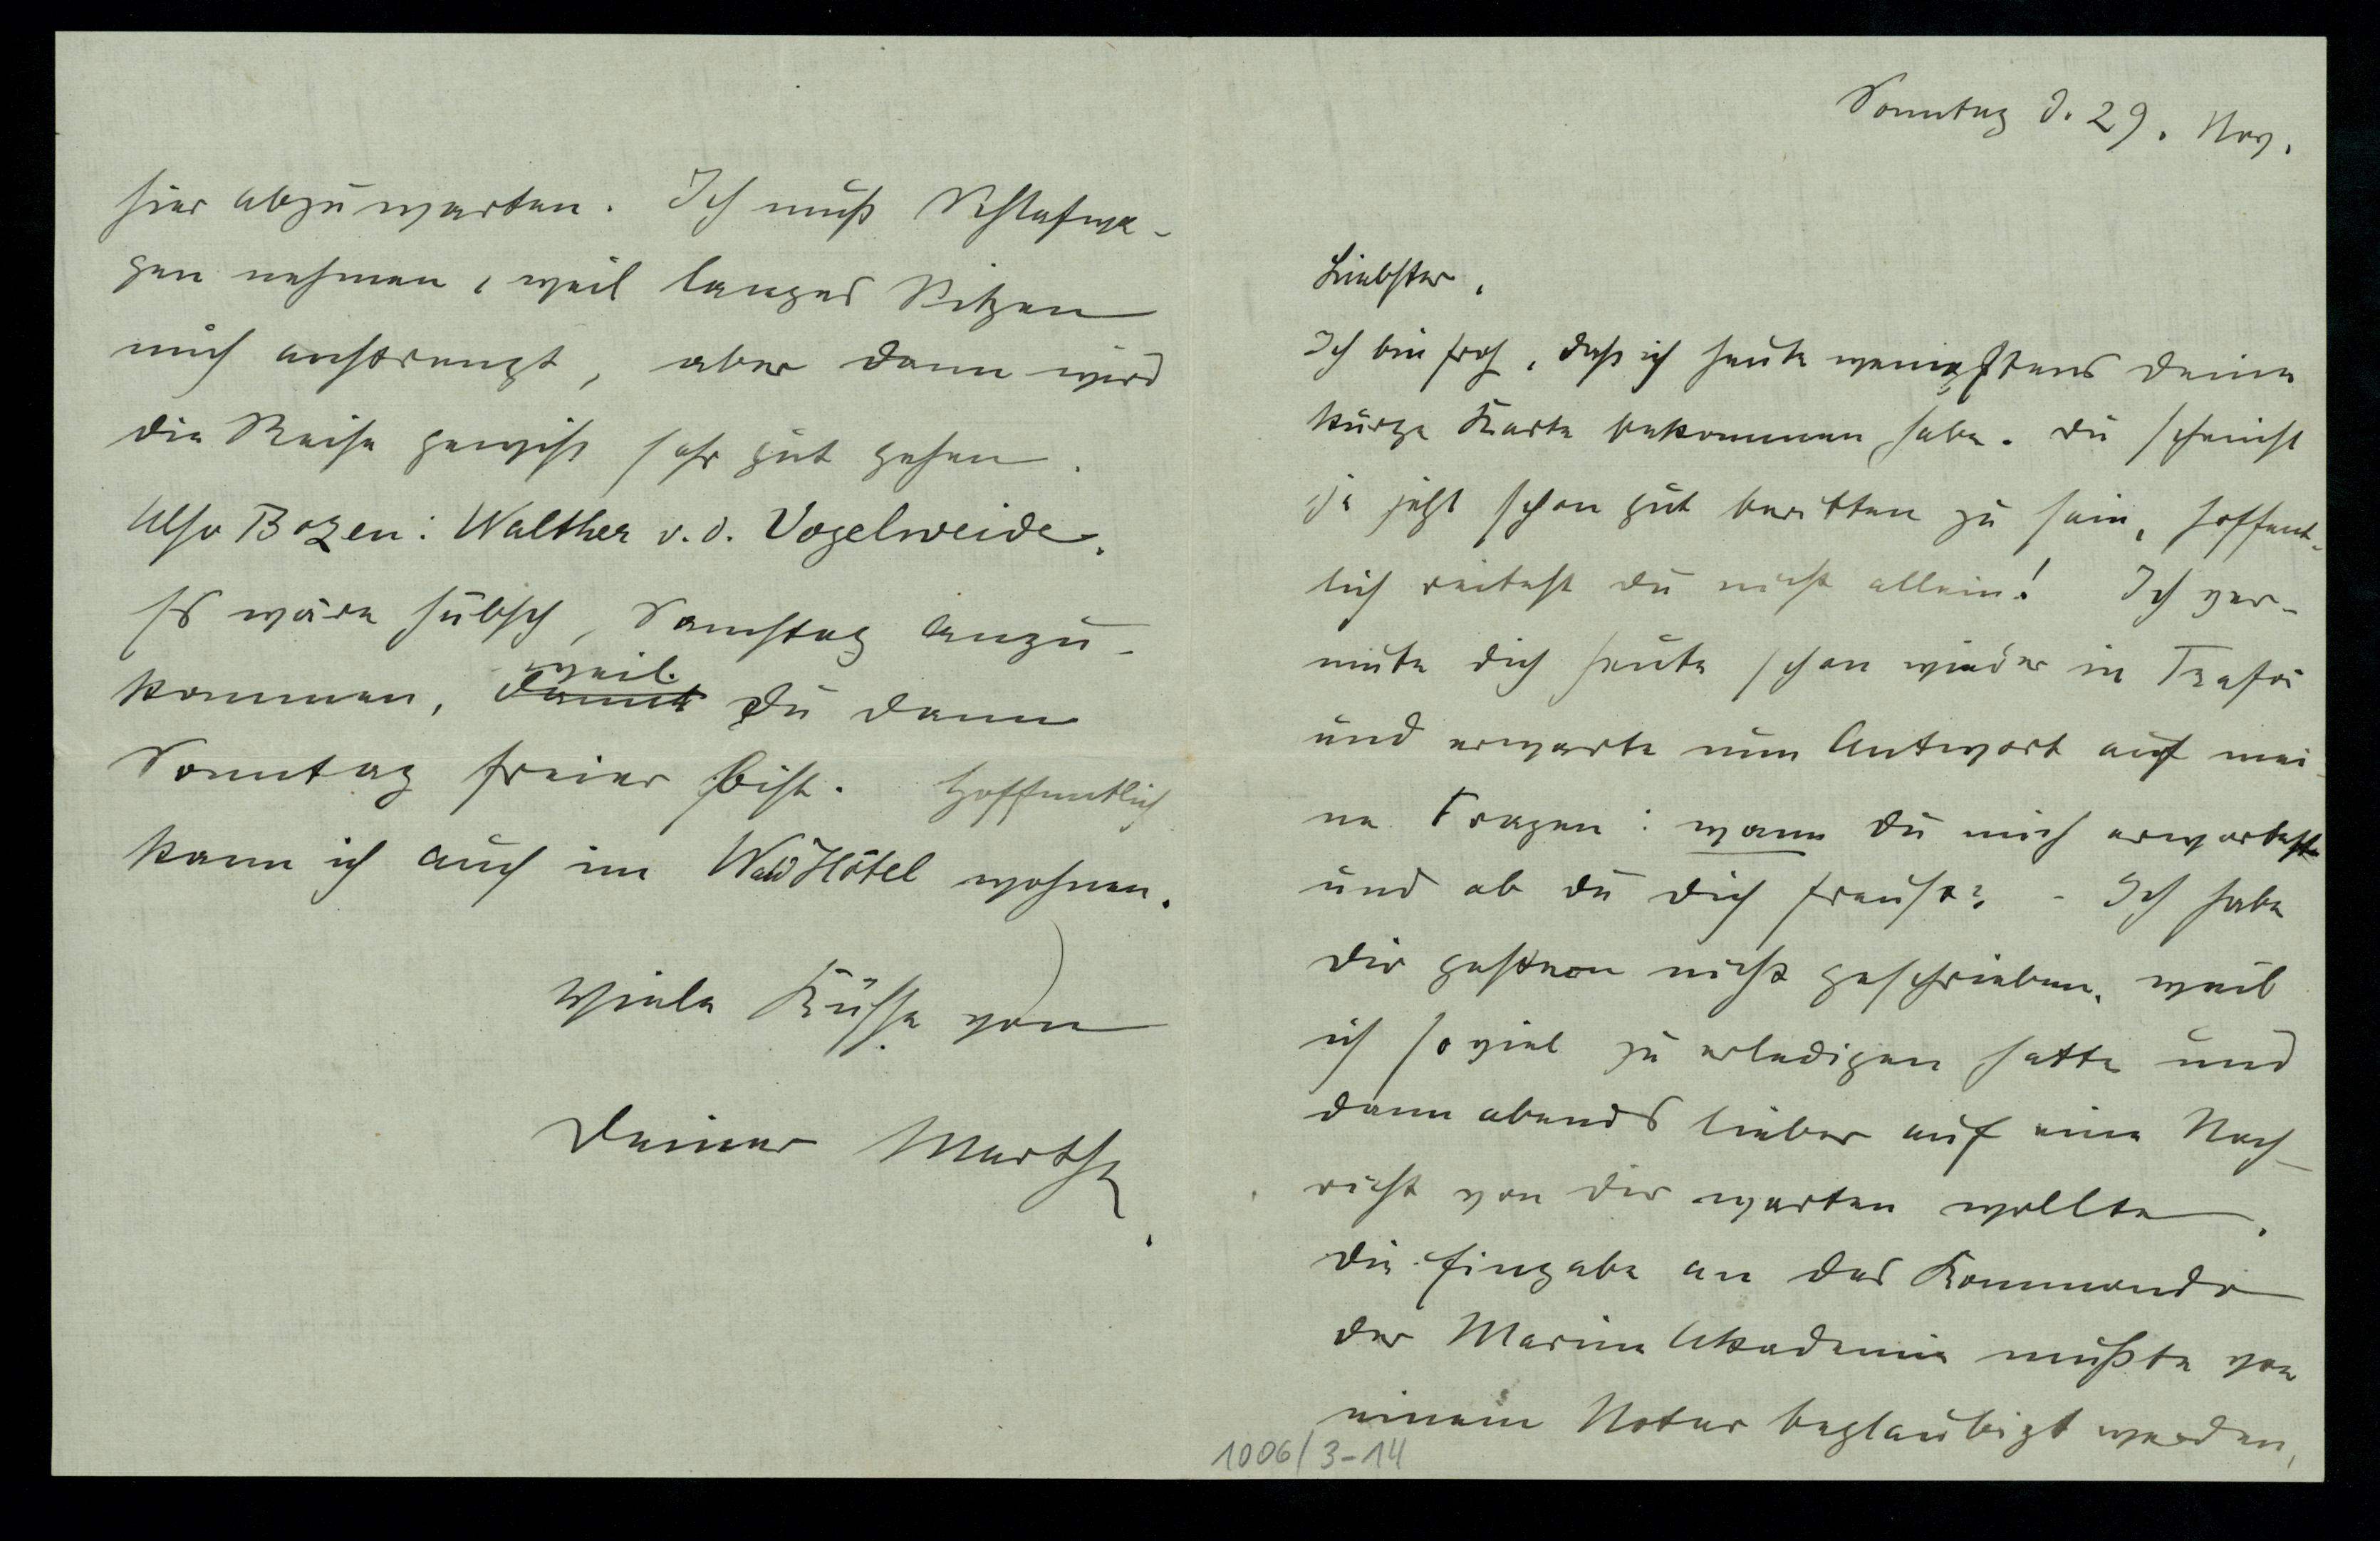 Sonntag d. 29. Nov.
Liebster,
Ich bin froh, daß ich heute wenigstens deine
kurze Karte bekommen habe. Du scheinst
ja jetzt schon gut beritten zu sein, hoffent-
lich reitest du nicht allein! Ich ver-
mute dich heute schon wieder in Trafoi
und erwarte nun Antwort auf mei-
ne Fragen: wann du mich erwartest
und ob du dich freust? - Ich habe
dir gestern nicht geschrieben, weil
ich so viel zu erledigen hatte und
dann abends lieber auf eine Nach-
richt von dir warten wollte.
Die Eingabe an das Kommando
der Marine Akademie mußte von
einem Notar beglaubigt werden,
1006/3-14
hier abzuwarten. Ich muß Schlafwa-
gen nehmen, weil langes Sitzen
mich anstrengt, aber dann wird
die Reise gewiß sehr gut gehen.
Also Bozen: Walther v. d. Vogelweide.
Es wäre hübsch, Samstag anzu-
kommen, damit weil du dann
Sonntag freier bist. Hoffentlich
kann ich auch im Wald Hôtel wohnen.
Viele Küsse von
Deiner Martha